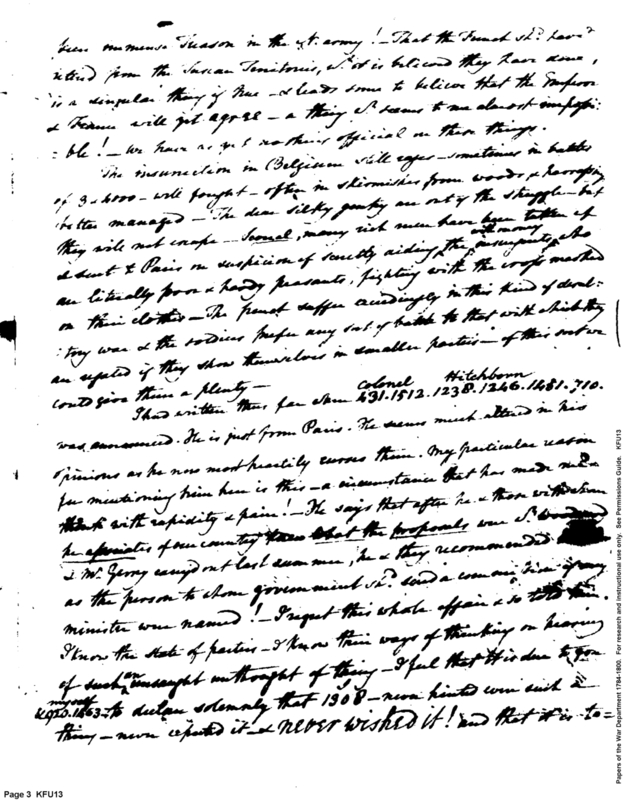 been immense Treason in the army! - That the French shd. have
retired from the Territories, it is believed they have done,
is a singular thing if true - & leads some to believe that the Emperor
& France will yet agree - a thing seems to me almost impossi-
= ble! - we have as yet nothing official on these things.
The insurrection in Belgium still rages - sometimes in battles
of 3 & 4000 - well fought - often in skirmishes from woods &
better managed - The dear silky gentry are out of the struggle - but
they will not escape - Several, many rich men have been taken up
& sent to Paris on suspicion of secretly aiding with money the insurgents, who
are literally poor & hardy peasants, fighting with the cross marked
on their clothes - The French suffer exceedingly in this kind of desul-
: tory war & the soldiers prefer any sort of battle to that with which they
are if they show themselves in smaller parties - of this sort we
could give them a plenty -
Colonel Hitchborn
I had written thus far when 431.1512.1238.1246.1481.710.
was announced. He is just from Paris. He seems much altered in his
opinions as he now most heartily curses them. My particular reason
for mentioning him here is this - a circumstance that has made me
with rapidity & pain! - He says that after he & those with whom
he associates of our country what the proposals were
& Mr. Gerry carry'd out last summer, he & they recommended
as the person to whom government shd. send a commission if any
minister were named! - I regret this whole affair & so told him.
I know the state of parties - I know their ways of thinking on hearing
of such an unsought unthought of thing - I feel that it is due to you
myself
& 920.1663 - to declare solemnly that 1308 - never hinted even such a
thing - never expected it - & never wished it! and that it is to=
Page 3 KFU13
Papers of the War Department 1784-1800. For research and instructional use only. See Permissions Guide. KFU13